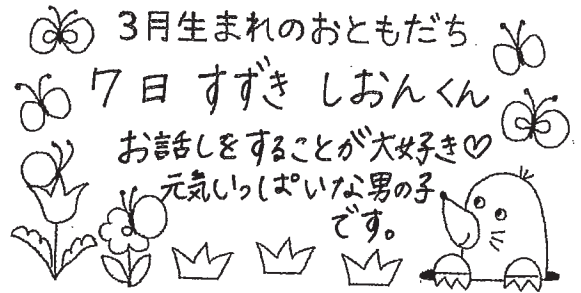 3月生まれのおともだち
7日 すずき しおんくん
お話しをすることが大好き♡
元気いっぱいな男の子
です。